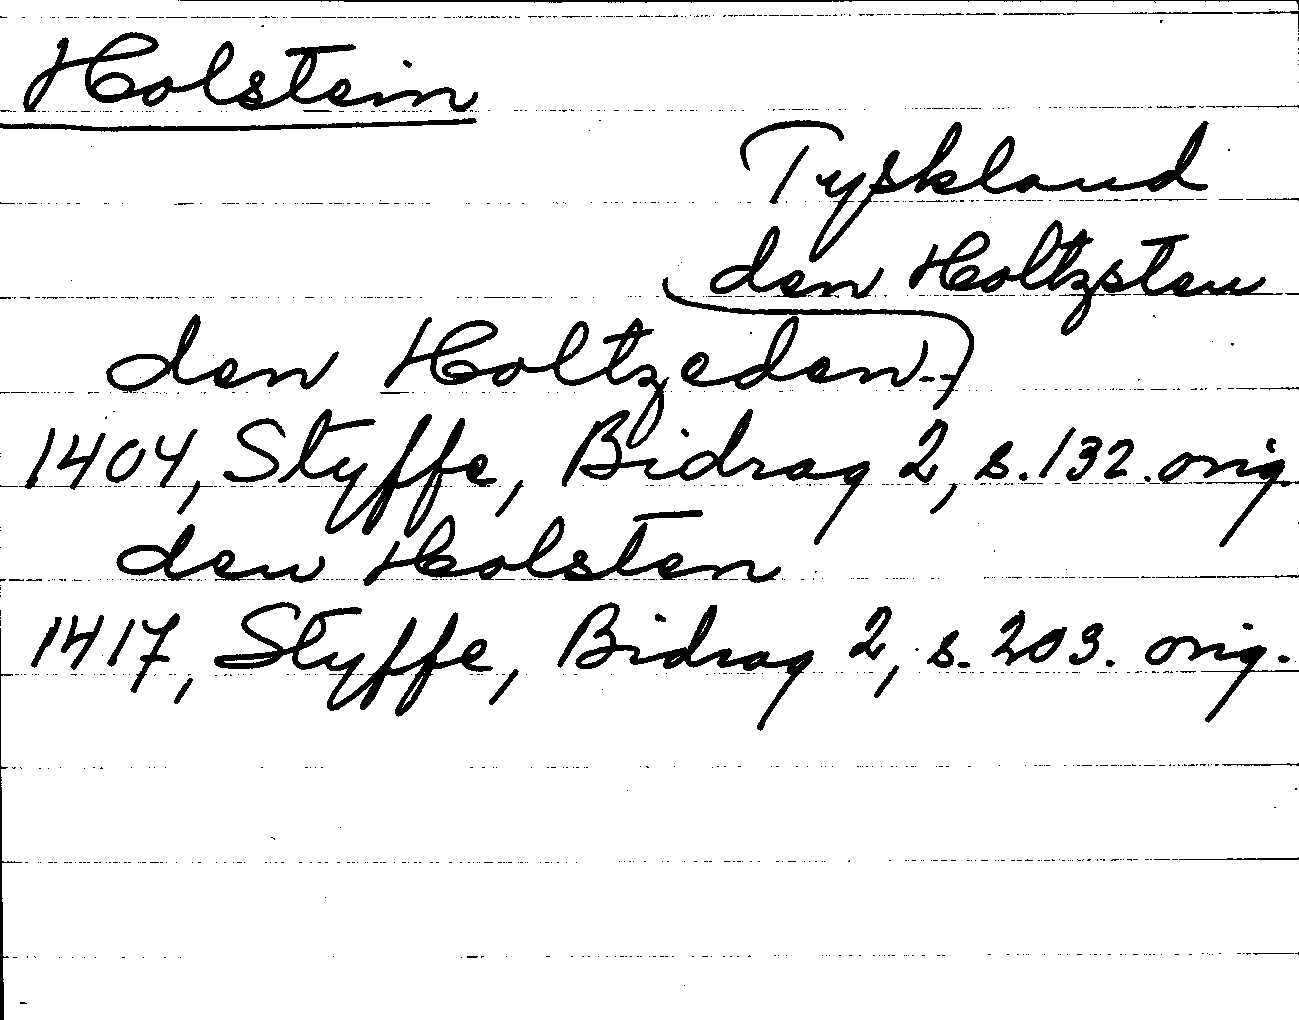 Holstein
Tyskland
den Holtzsten
den Holtzeden--)
1404, Styffe, Bidrag 2, s. 132. orig.
den Holsten
1417, Styffe, Bidrag 2, s. 203. orig.